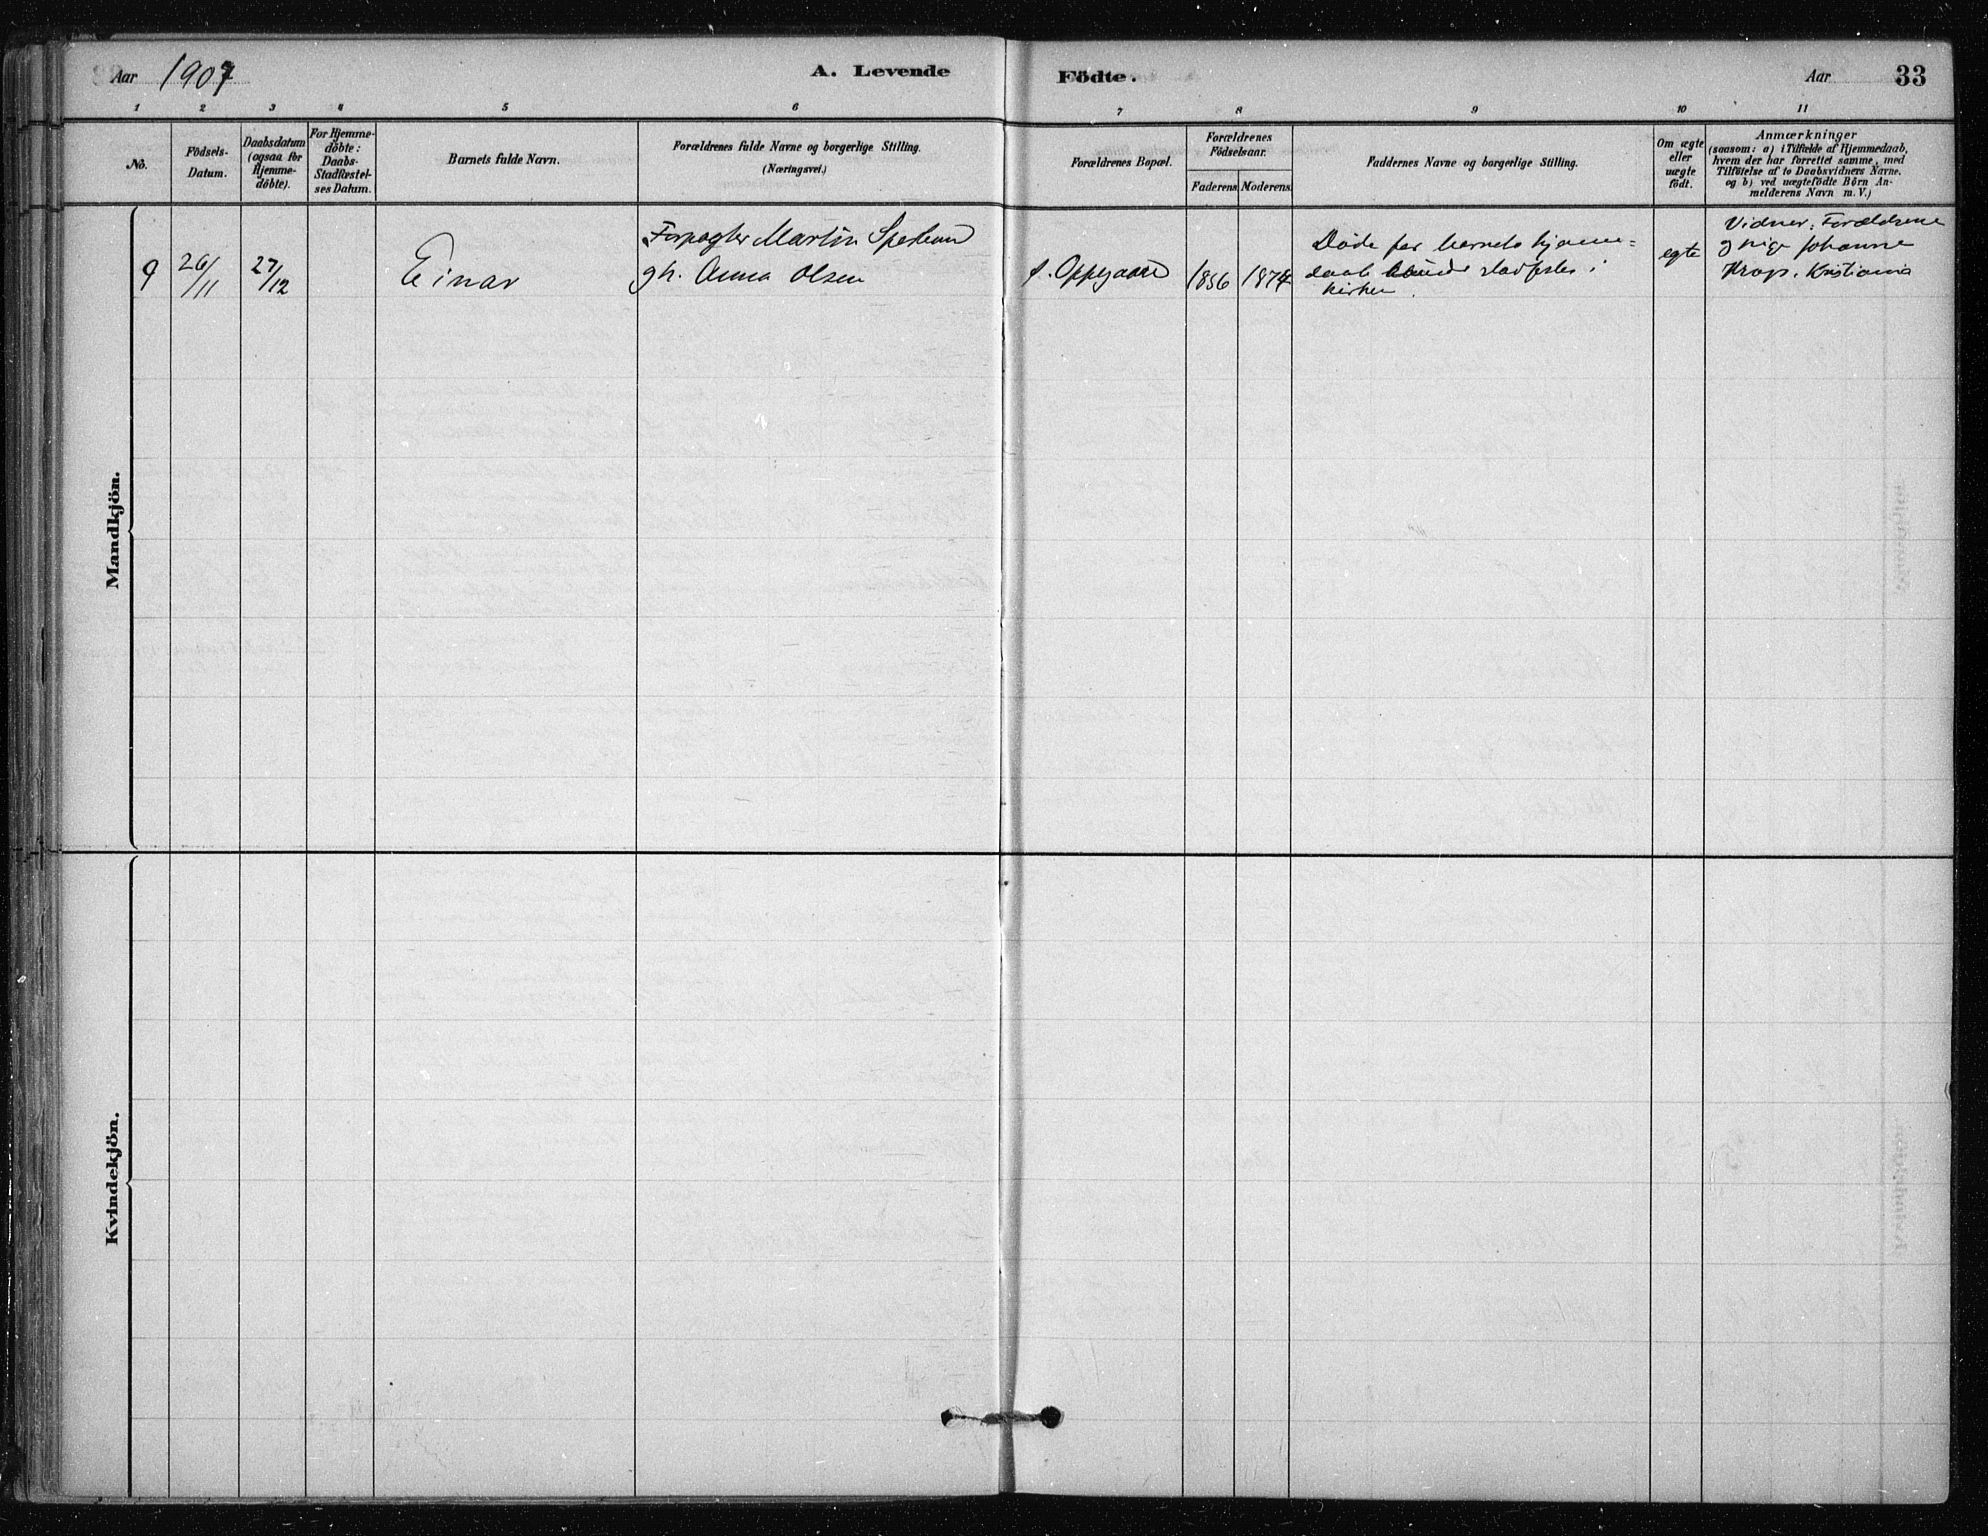 Aar 1907
A. Levende
Födte.
Aar
33
1 2 3 4 5 6 7 8 9 10 11
Nö.
Födsels-
Datum.
Daabsdatum
(ogsaa for
Hjemme-
döbte).
For Hjemme-
döbte:
Daabs-
Stadfæstel-
ses Datum.
Barnets fulde Navn.
Forældrenes fulde Navne og borgerlige Stilling.
(Næringsvei.)
Forældrenes Bopæl.
Forældrenes
Födselsaar.
Faderens.
Moderens.
Faddernes Navne og borgerlige Stilling.
Om ægte
eller
uægte
födt.
Anmærkninger
(saasom: a) i Tilfælde af Hjemmedaab,
hvem der har forrettet samme, med
Tilföielse af to Daabsvidners Navne,
og b) ved uægtefödte Börn An-
melderens Navn m. V.)
Mandkjön.
9
26/11
27/12
Einar
Forpagter Martin
gh. Anna Olsen
Oppegaard
1856
1874
Døde før barnets hjemme=
daab stadfestes i
kirken.
egte
Vidner: Forældrene
og pige Johanne
Krogs. Kristiania
Kvindekjön.